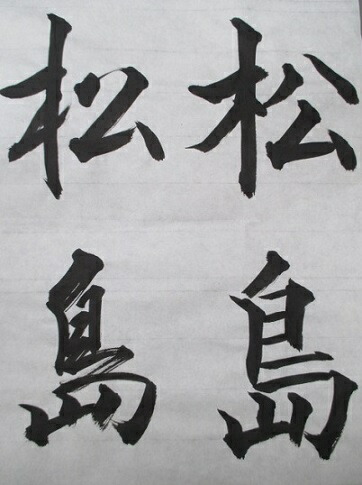 松島
松島